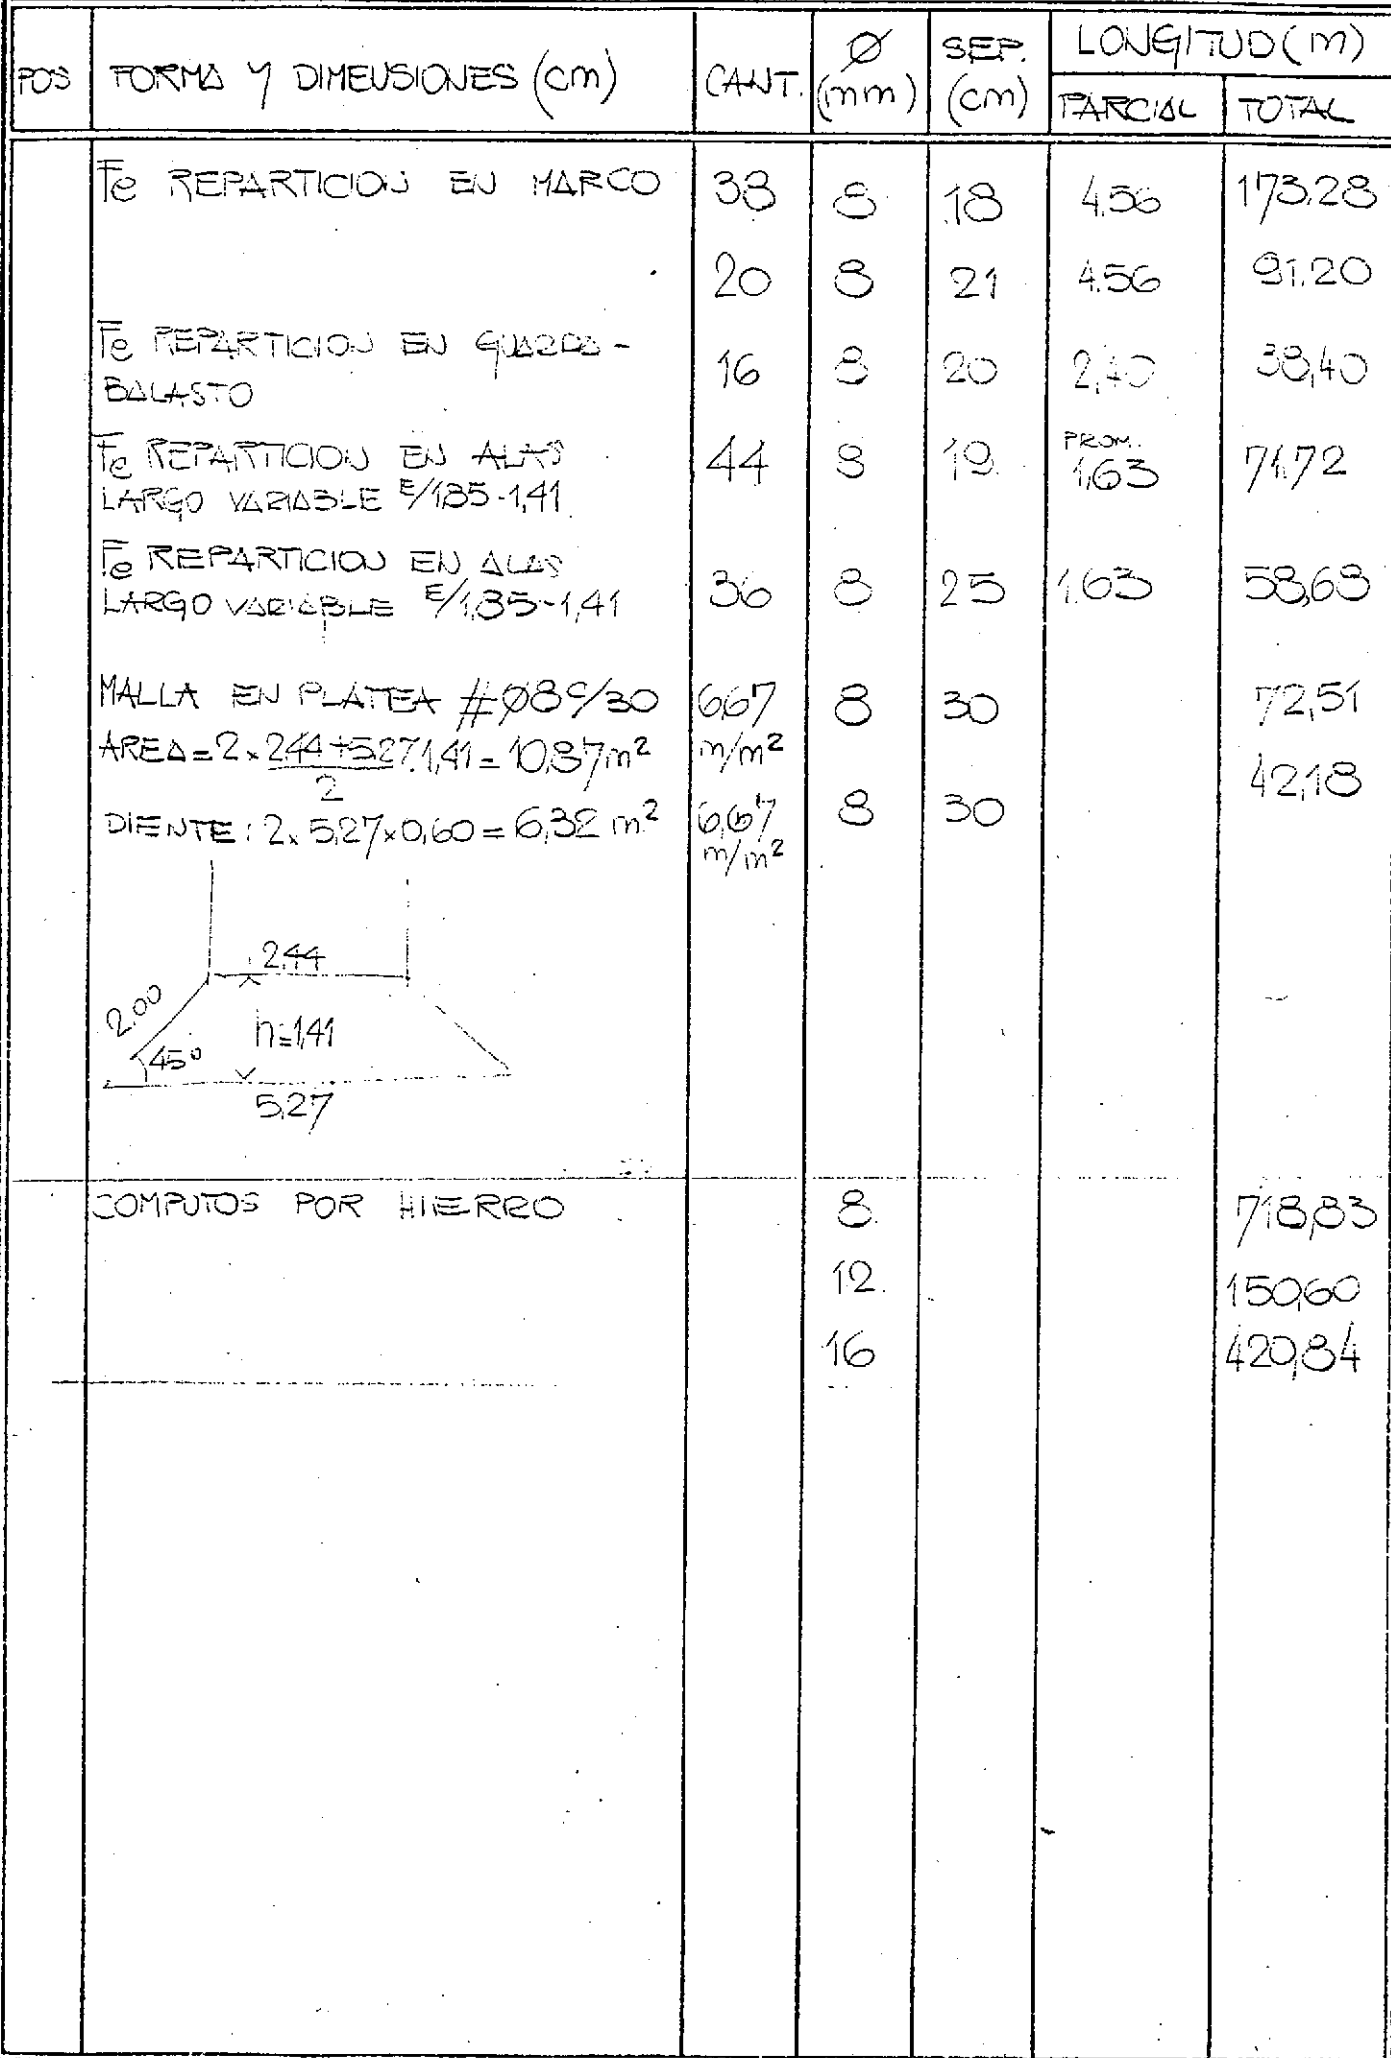 POS FORMA Y DIMENSIONES (cm) CANT. Ø (mm) SEP. (cm) LONGITUD (m)
PARCIAL TOTAL
Fe REPARTICION EN MARCO 38 8 18 4.56 173.28
20 8 21 4.56 91.20
Fe REPARTICION EN GUARDA-
BALASTO 16 8 20 2,40 38,40
Fe REPARTICION EN ALAS 44 8 19 PROM. 1,63 71,72
LARGO VARIABLE E/1,85-1,41
Fe REPARTICION EN ALAS
LARGO VARIABLE E/1,85-1,41 36 8 25 1.63 58,68
MALLA EN PLATEA #Ø8 c/30 6,67 m/m² 8 30 72,51
AREA = 2 x 2,44+5,27 . 1,41 = 10,87 m²
2
42,18
DIENTE: 2 x 5,27 x 0,60 = 6,32 m² 6,67 m/m² 8 30
2.44
2.00
h=1,41
45°
5,27
COMPUTOS POR HIERRO 8 718,83
12 150,60
16 420,84